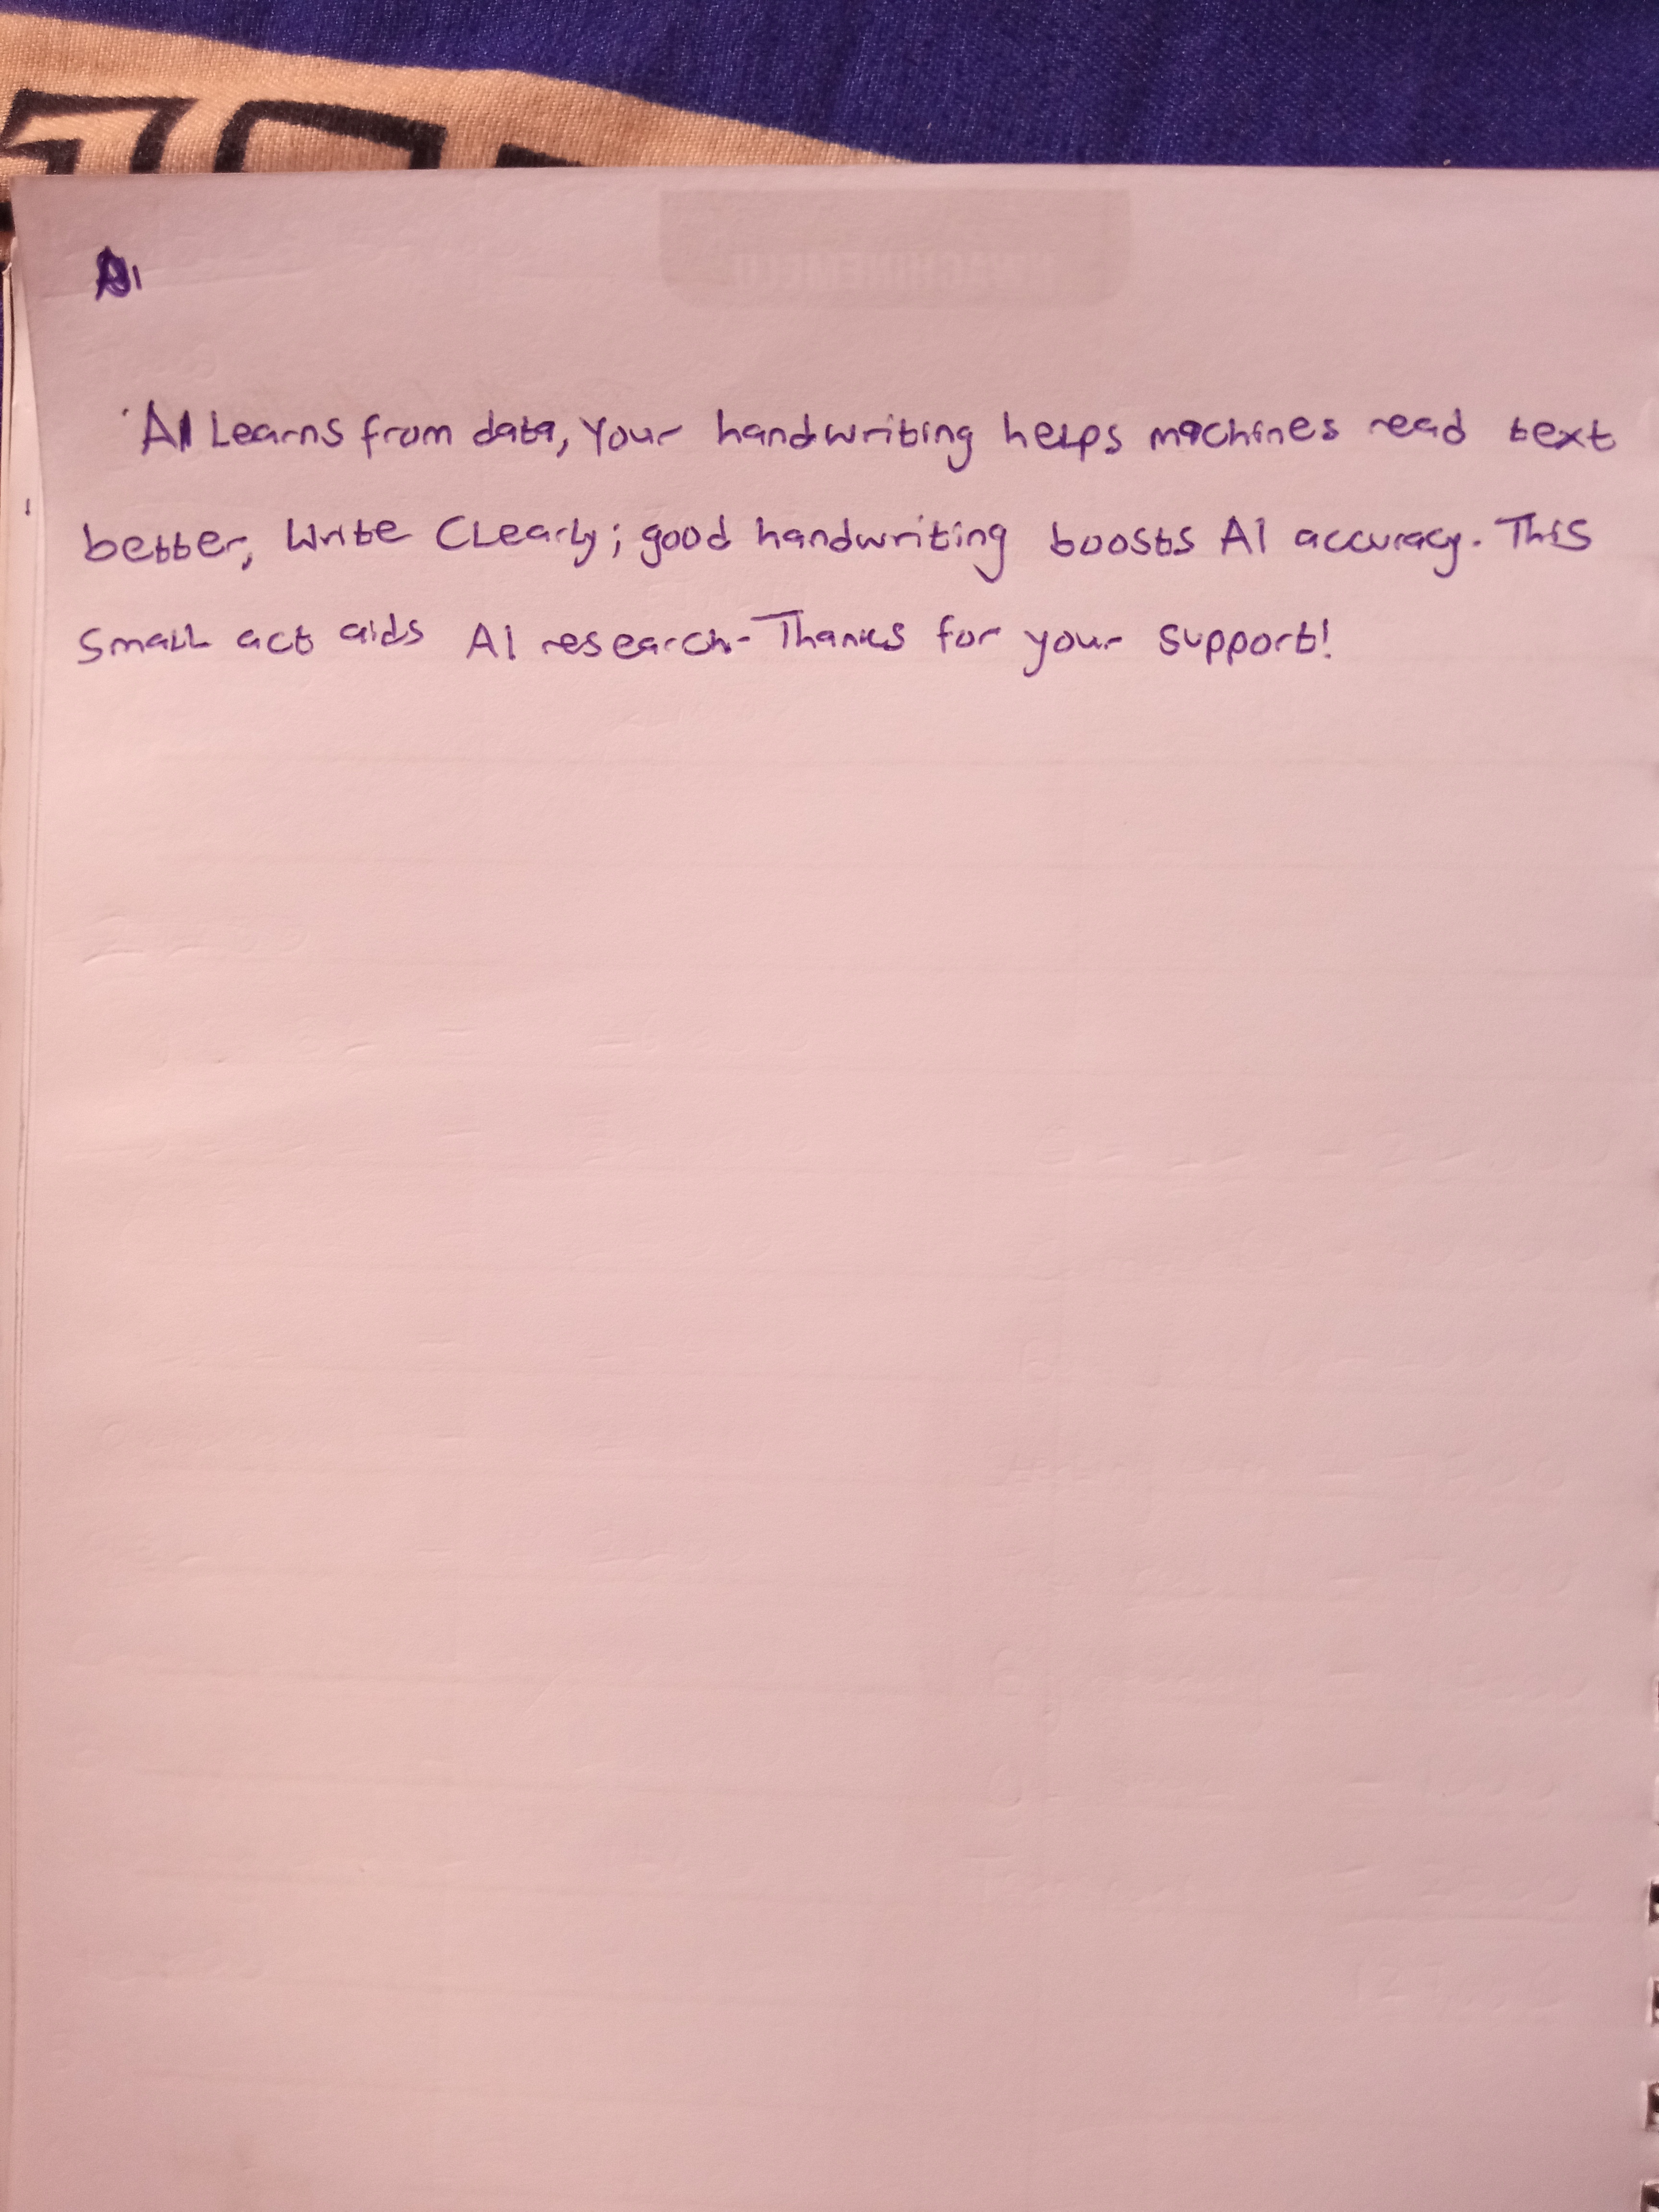 AI Learns from data, Your handwriting helps machines read text
better, Write Clearly; good handwriting boosts AI accuracy. This
Small act aids AI research- Thanks for your support!